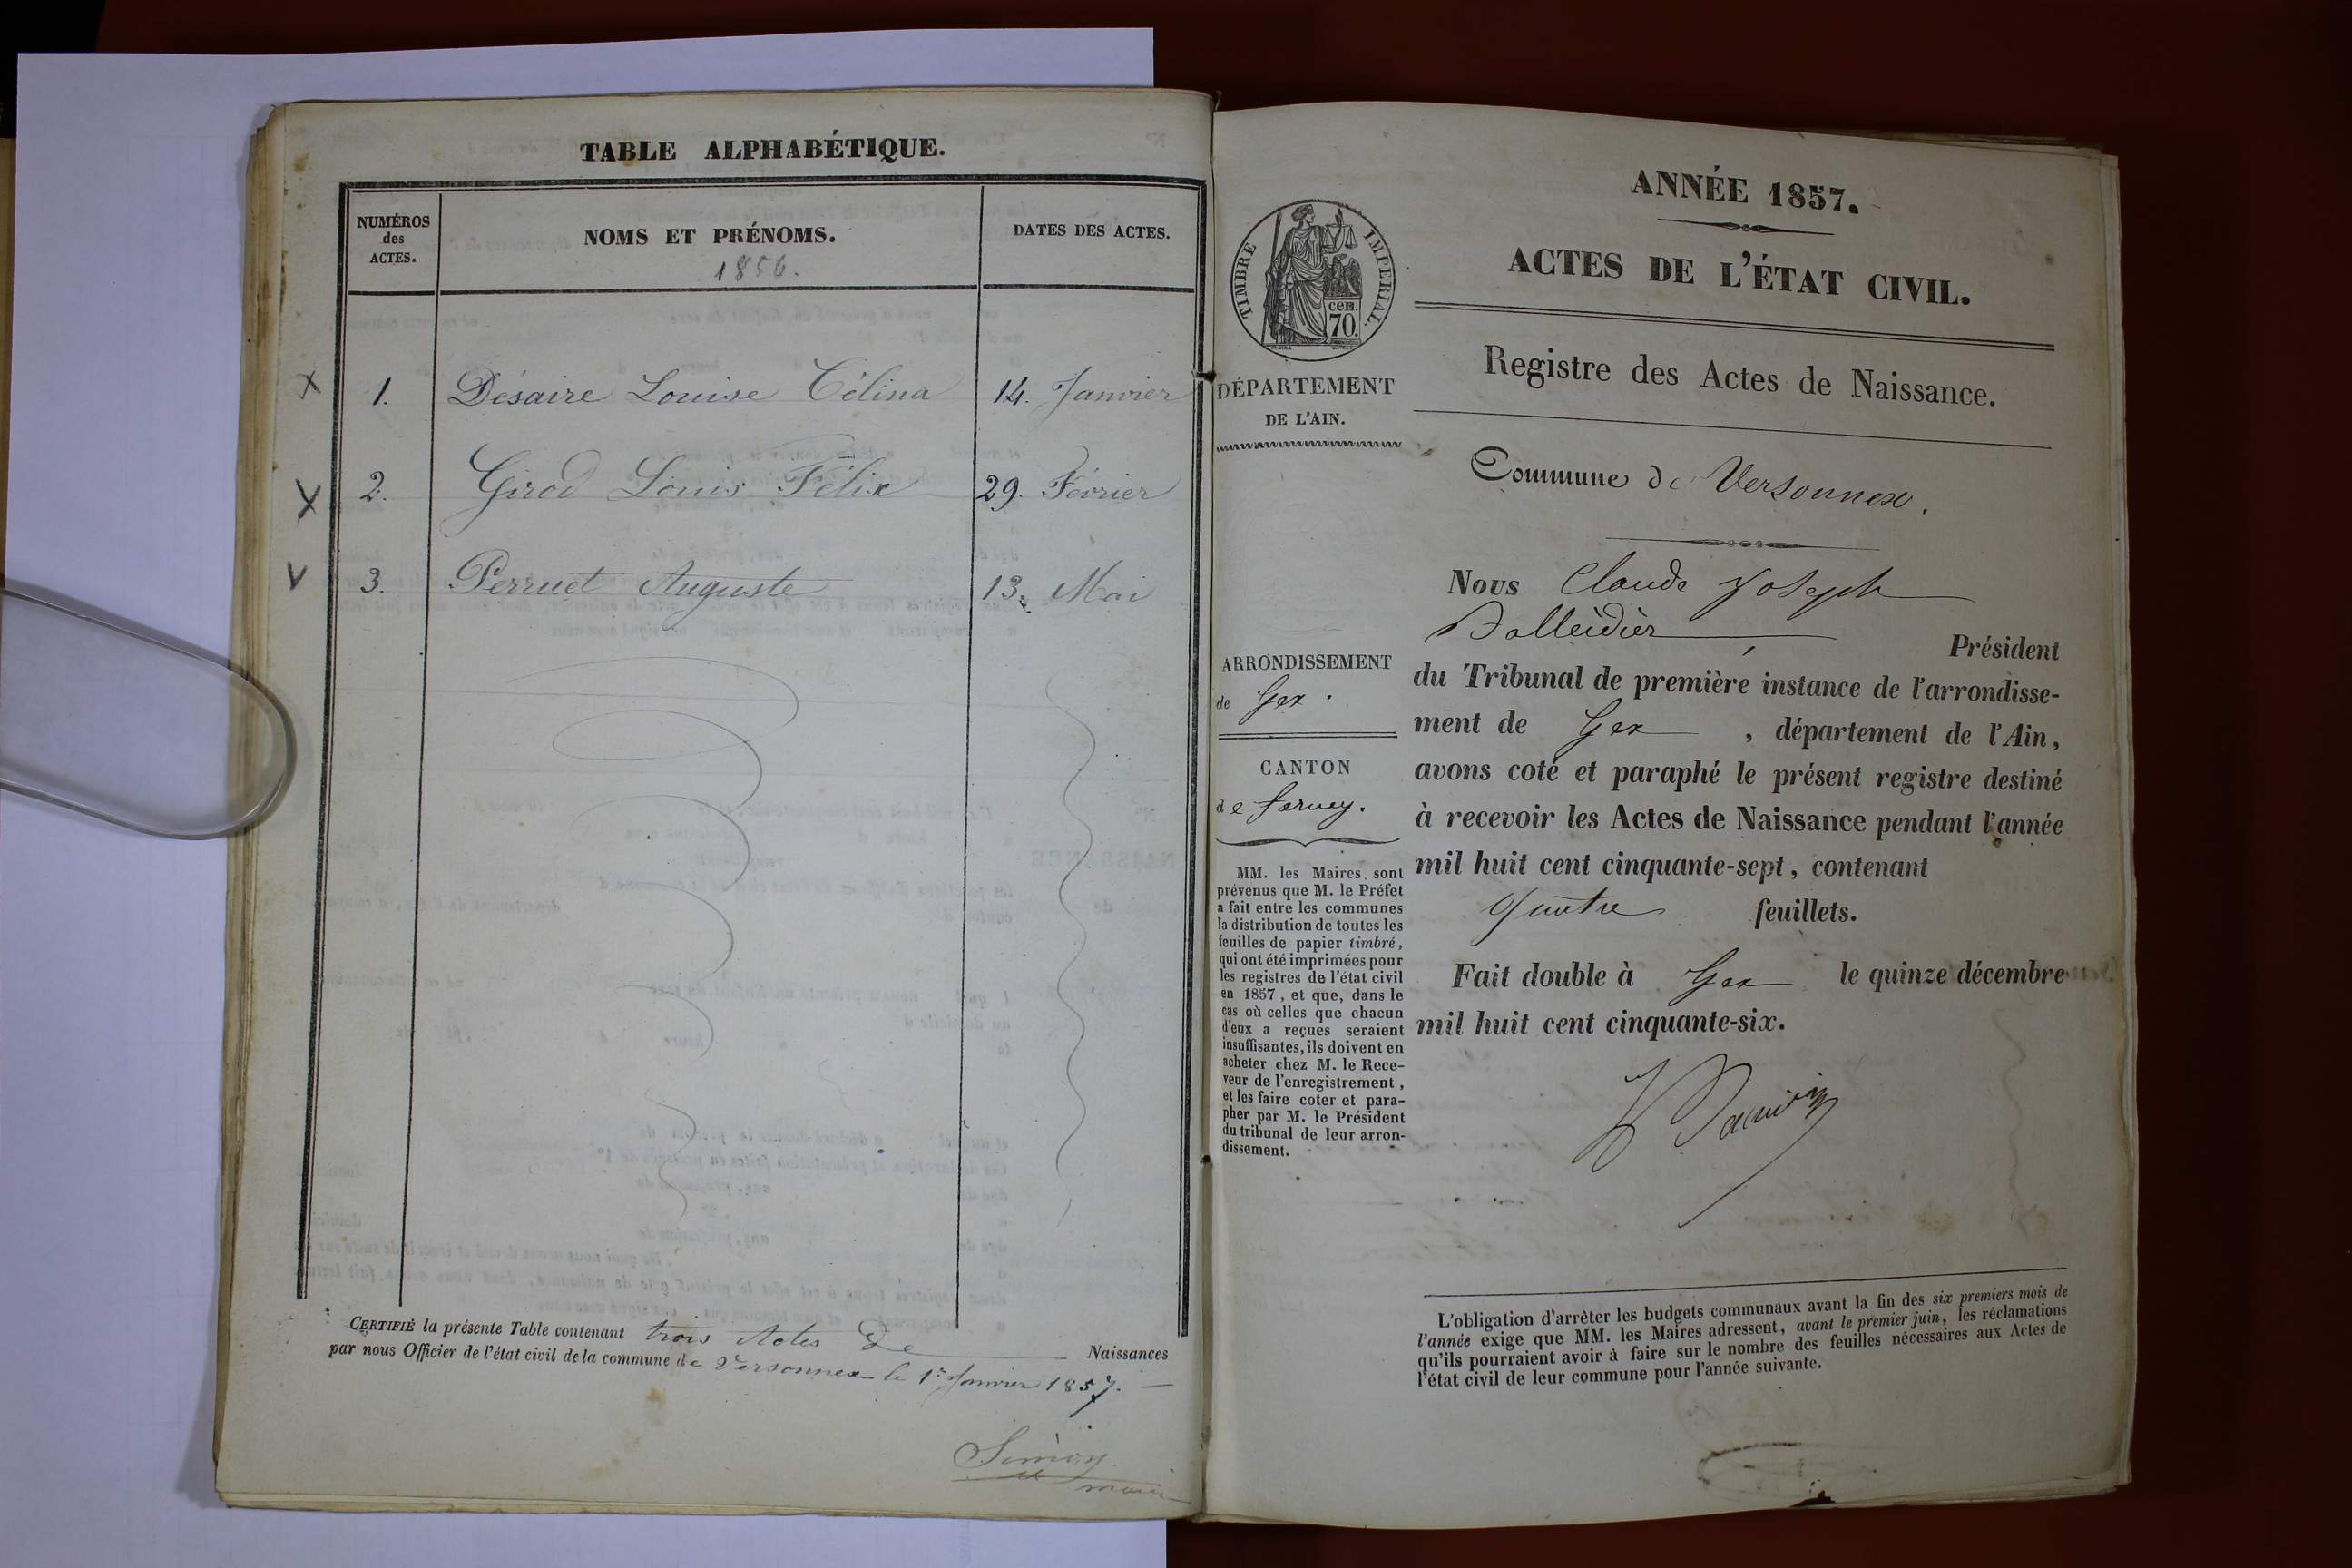 TABLE ALPHABÉTIQUE.
NUMÉROS
des
ACTES.
NOMS ET PRÉNOMS.
1856.
DATES DES ACTES.
X 1. Désaire Louise Célina 14. Janvier
X 2. Girod Louis Félix 29. Février
V 3. Perruet Auguste 13. Mai
CERTIFIÉ la présente Table contenant trois Actes De Naissances
par nous Officier de l'état civil de la commune de Versonnex le 1er Janvier 1857.
Simon
maire
ANNÉE 1857.
ACTES DE L'ÉTAT CIVIL.
Registre des Actes de Naissance.
TIMBRE IMPERIAL.
CEN.
70.
DÉPARTEMENT
DE L'AIN.
ARRONDISSEMENT
de Gex.
CANTON
de Ferney.
MM. les Maires sont
prévenus que M. le Préfet
a fait entre les communes
la distribution de toutes les
feuilles de papier timbré,
qui ont été imprimées pour
les registres de l'état civil
en 1857, et que, dans le
cas où celles que chacun
d'eux a reçues seraient
insuffisantes, ils doivent en
acheter chez M. le Rece-
veur de l'enregistrement,
et les faire coter et para-
pher par M. le Président
du tribunal de leur arron-
dissement.
Commune de Versonnex.
Nous Claude Joseph
Président
du Tribunal de première instance de l'arrondisse-
ment de Gex, département de l'Ain,
avons coté et paraphé le présent registre destiné
à recevoir les Actes de Naissance pendant l'année
mil huit cent cinquante-sept, contenant
Quatre feuillets.
Fait double à Gex le quinze décembre
mil huit cent cinquante-six.
L'obligation d'arrêter les budgets communaux avant la fin des six premiers mois de
l'année exige que MM. les Maires adressent, avant le premier juin, les réclamations
qu'ils pourraient avoir à faire sur le nombre des feuilles nécessaires aux Actes de
l'état civil de leur commune pour l'année suivante.